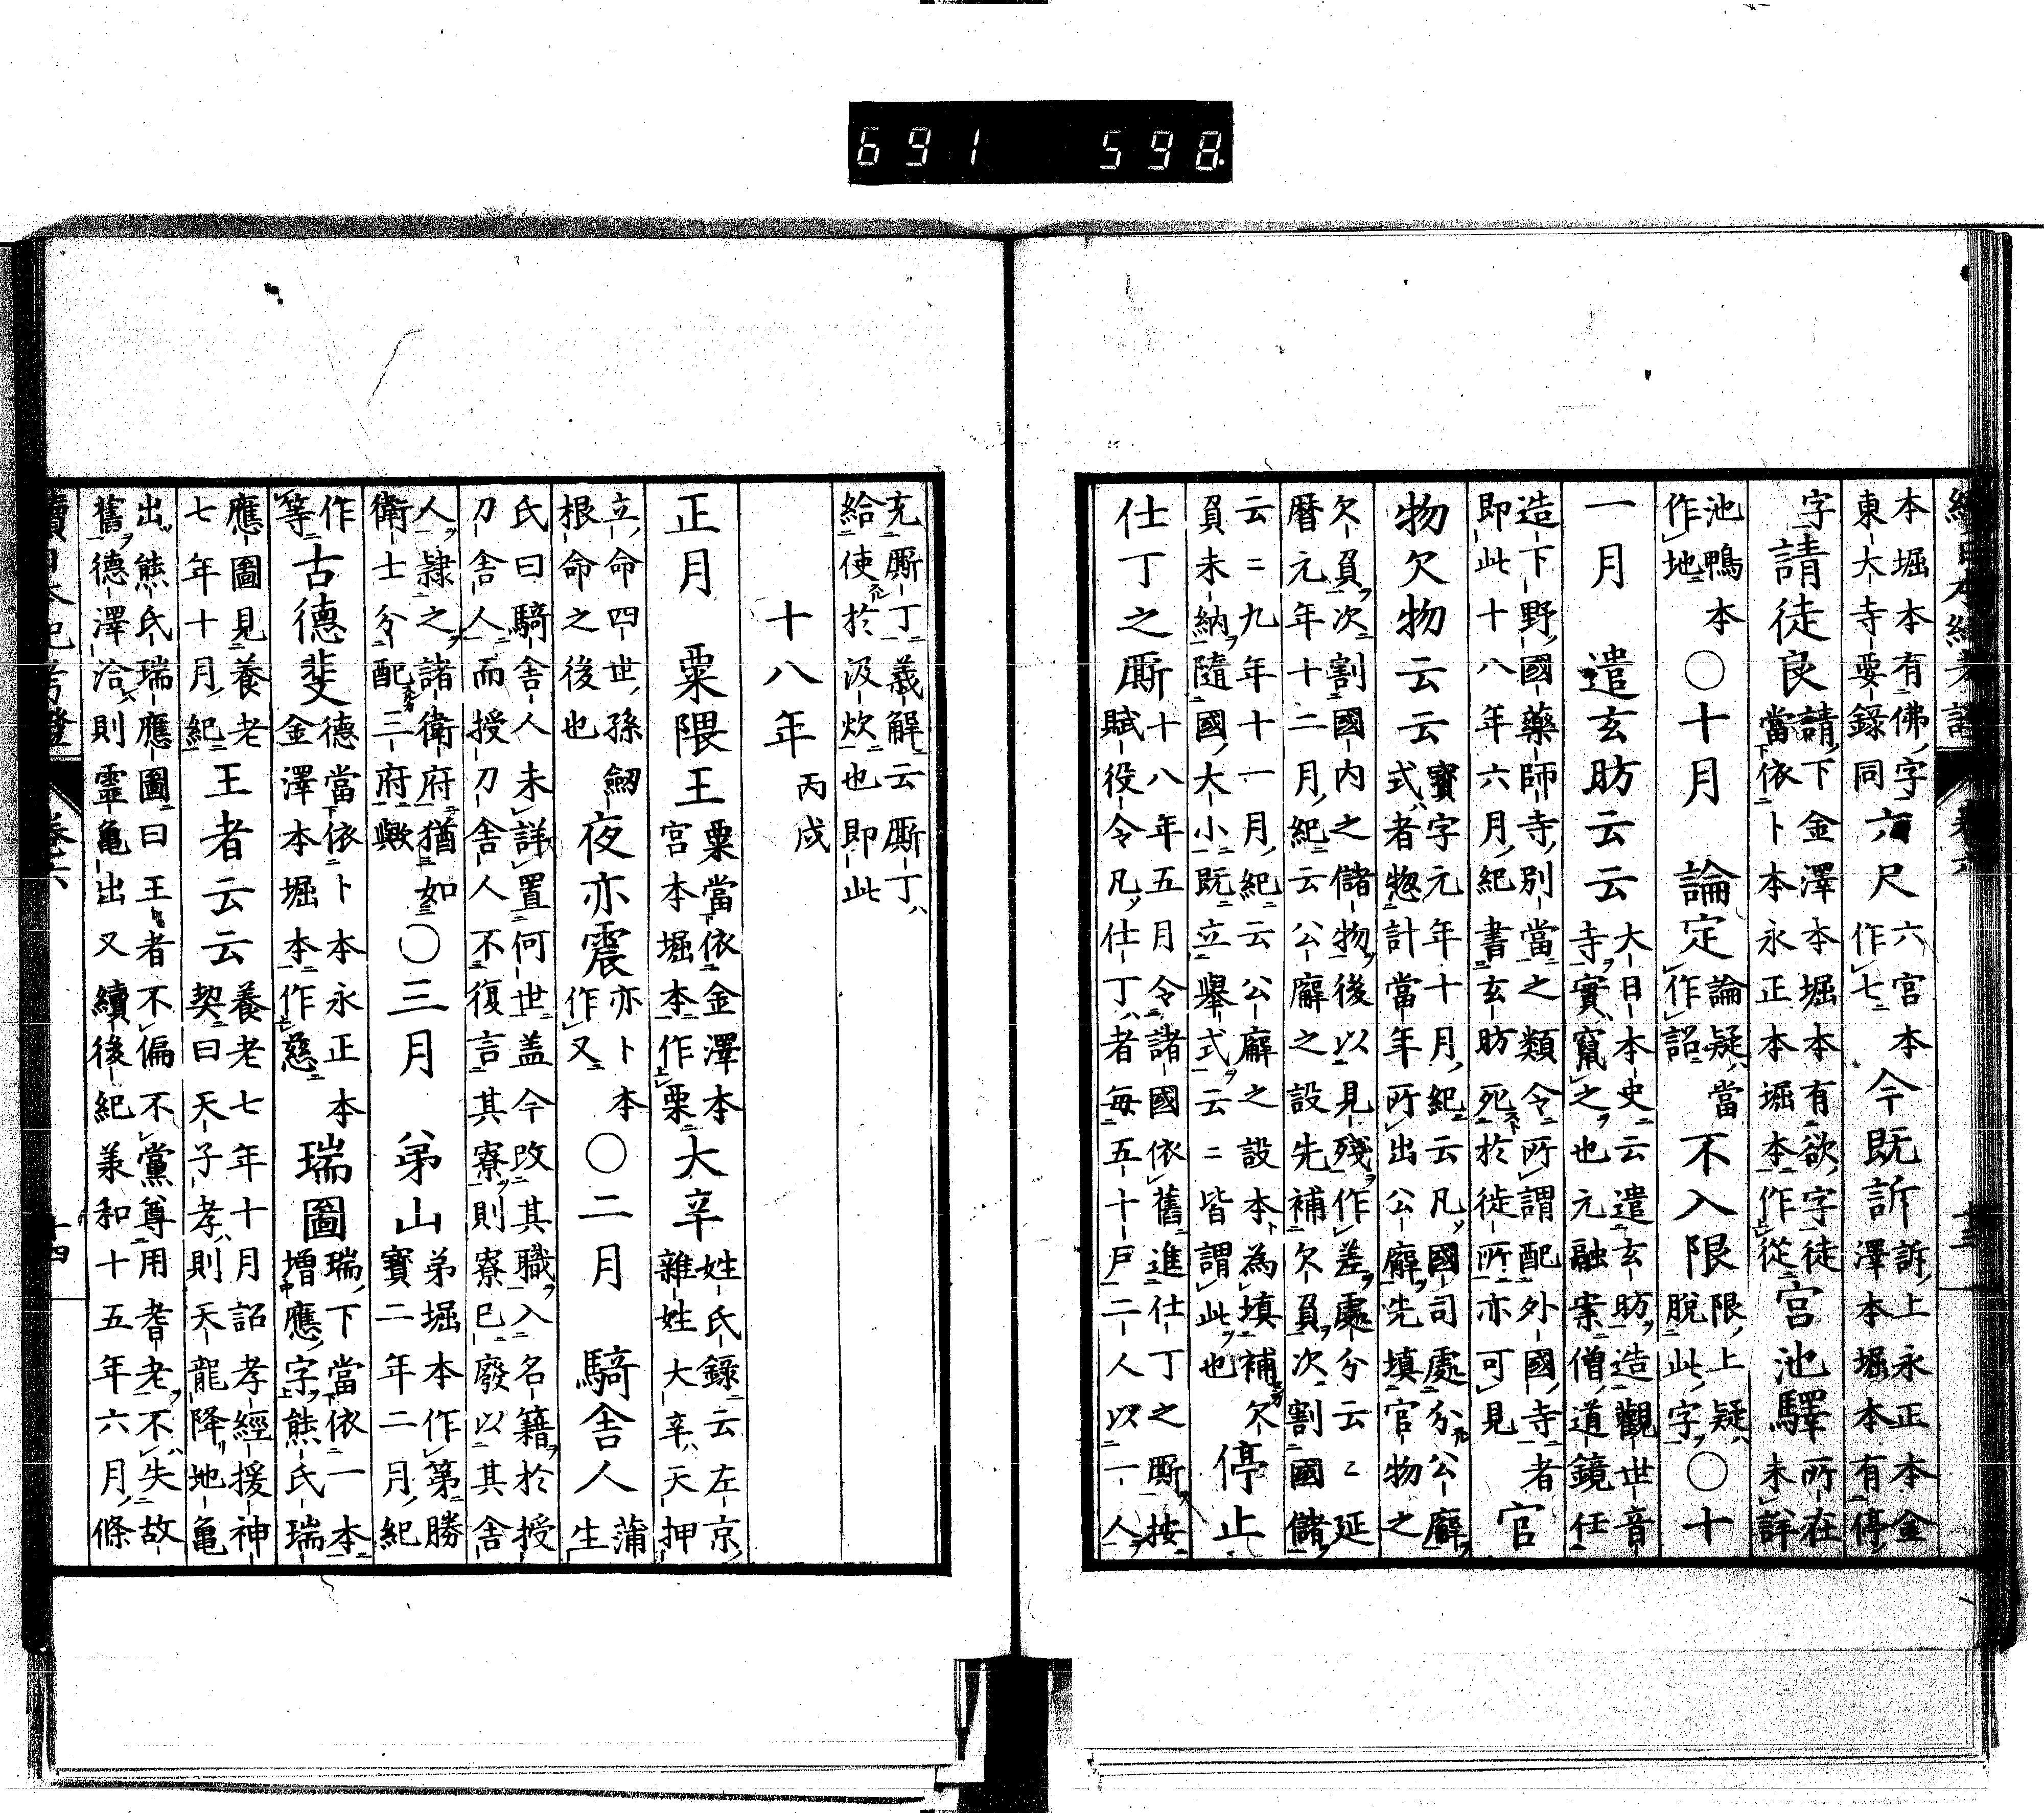 691 598.
本堀本有佛字六尺六宮本今既訴訴上永正本金
東大寺要錄同作七澤本堀本有停
字請徒良請下金澤本堀本有欲字徒宮池驛所在
當依卜本永正本堀本作從未詳
池鴨本〇十月論定論疑當不入限限上疑〇十
作地作詔脫此字
一月遣玄昉云云大日本史云遣玄昉造觀世音
寺實竄之也元融案僧道鏡任
造下野國藥師寺別當之類令所謂配外國寺者官
即此十八年六月紀書玄昉死於徙所亦可見
物欠物云云寶字元年十月紀云凡國司處分公廨
式者惣計當年所出公廨先填官物之
欠負次割國内之儲物後以見殘作差處分云々延
曆元年十二月紀云公廨之設先補欠負次割國儲
云二九年十一月紀云公廨之設本為填補欠停止
負未納隨國大小既立舉式云二皆謂此也
仕丁之廝十八年五月令諸國依舊進仕丁之廝按
賦役令凡仕丁者每五十戶二人以一人
充廝丁義解云廝丁
給使於汲炊也即此
十八年丙戌
正月粟隈王粟當依金澤本大辛姓氏錄云左京
宮本堀本作栗雜姓大辛天押
立命四世孫劒夜亦震亦卜本〇二月騎舍人蒲
根命之後也作又生
氏曰騎舍人未詳置何世盖今改其職入名籍於授
刀舍人而授刀舍人不復言其寮則寮已廢以其舍
人隸之諸衛府猶如〇三月弟山弟堀本作第勝
衛士分配三府歟寶二年二月紀
作古德斐德當依卜本永正本瑞圖瑞下當依一本
等金澤本堀本作慈增應字熊氏瑞
應圖見養老王者云云養老七年十月詔孝經援神
七年十月紀契曰天子孝則天龍降地龜
出熊氏瑞應圖曰王者不偏不黨尊用耆老不失故
舊德澤洽則靈龜出又續後紀羕和十五年六月條
卷六
十四
十三